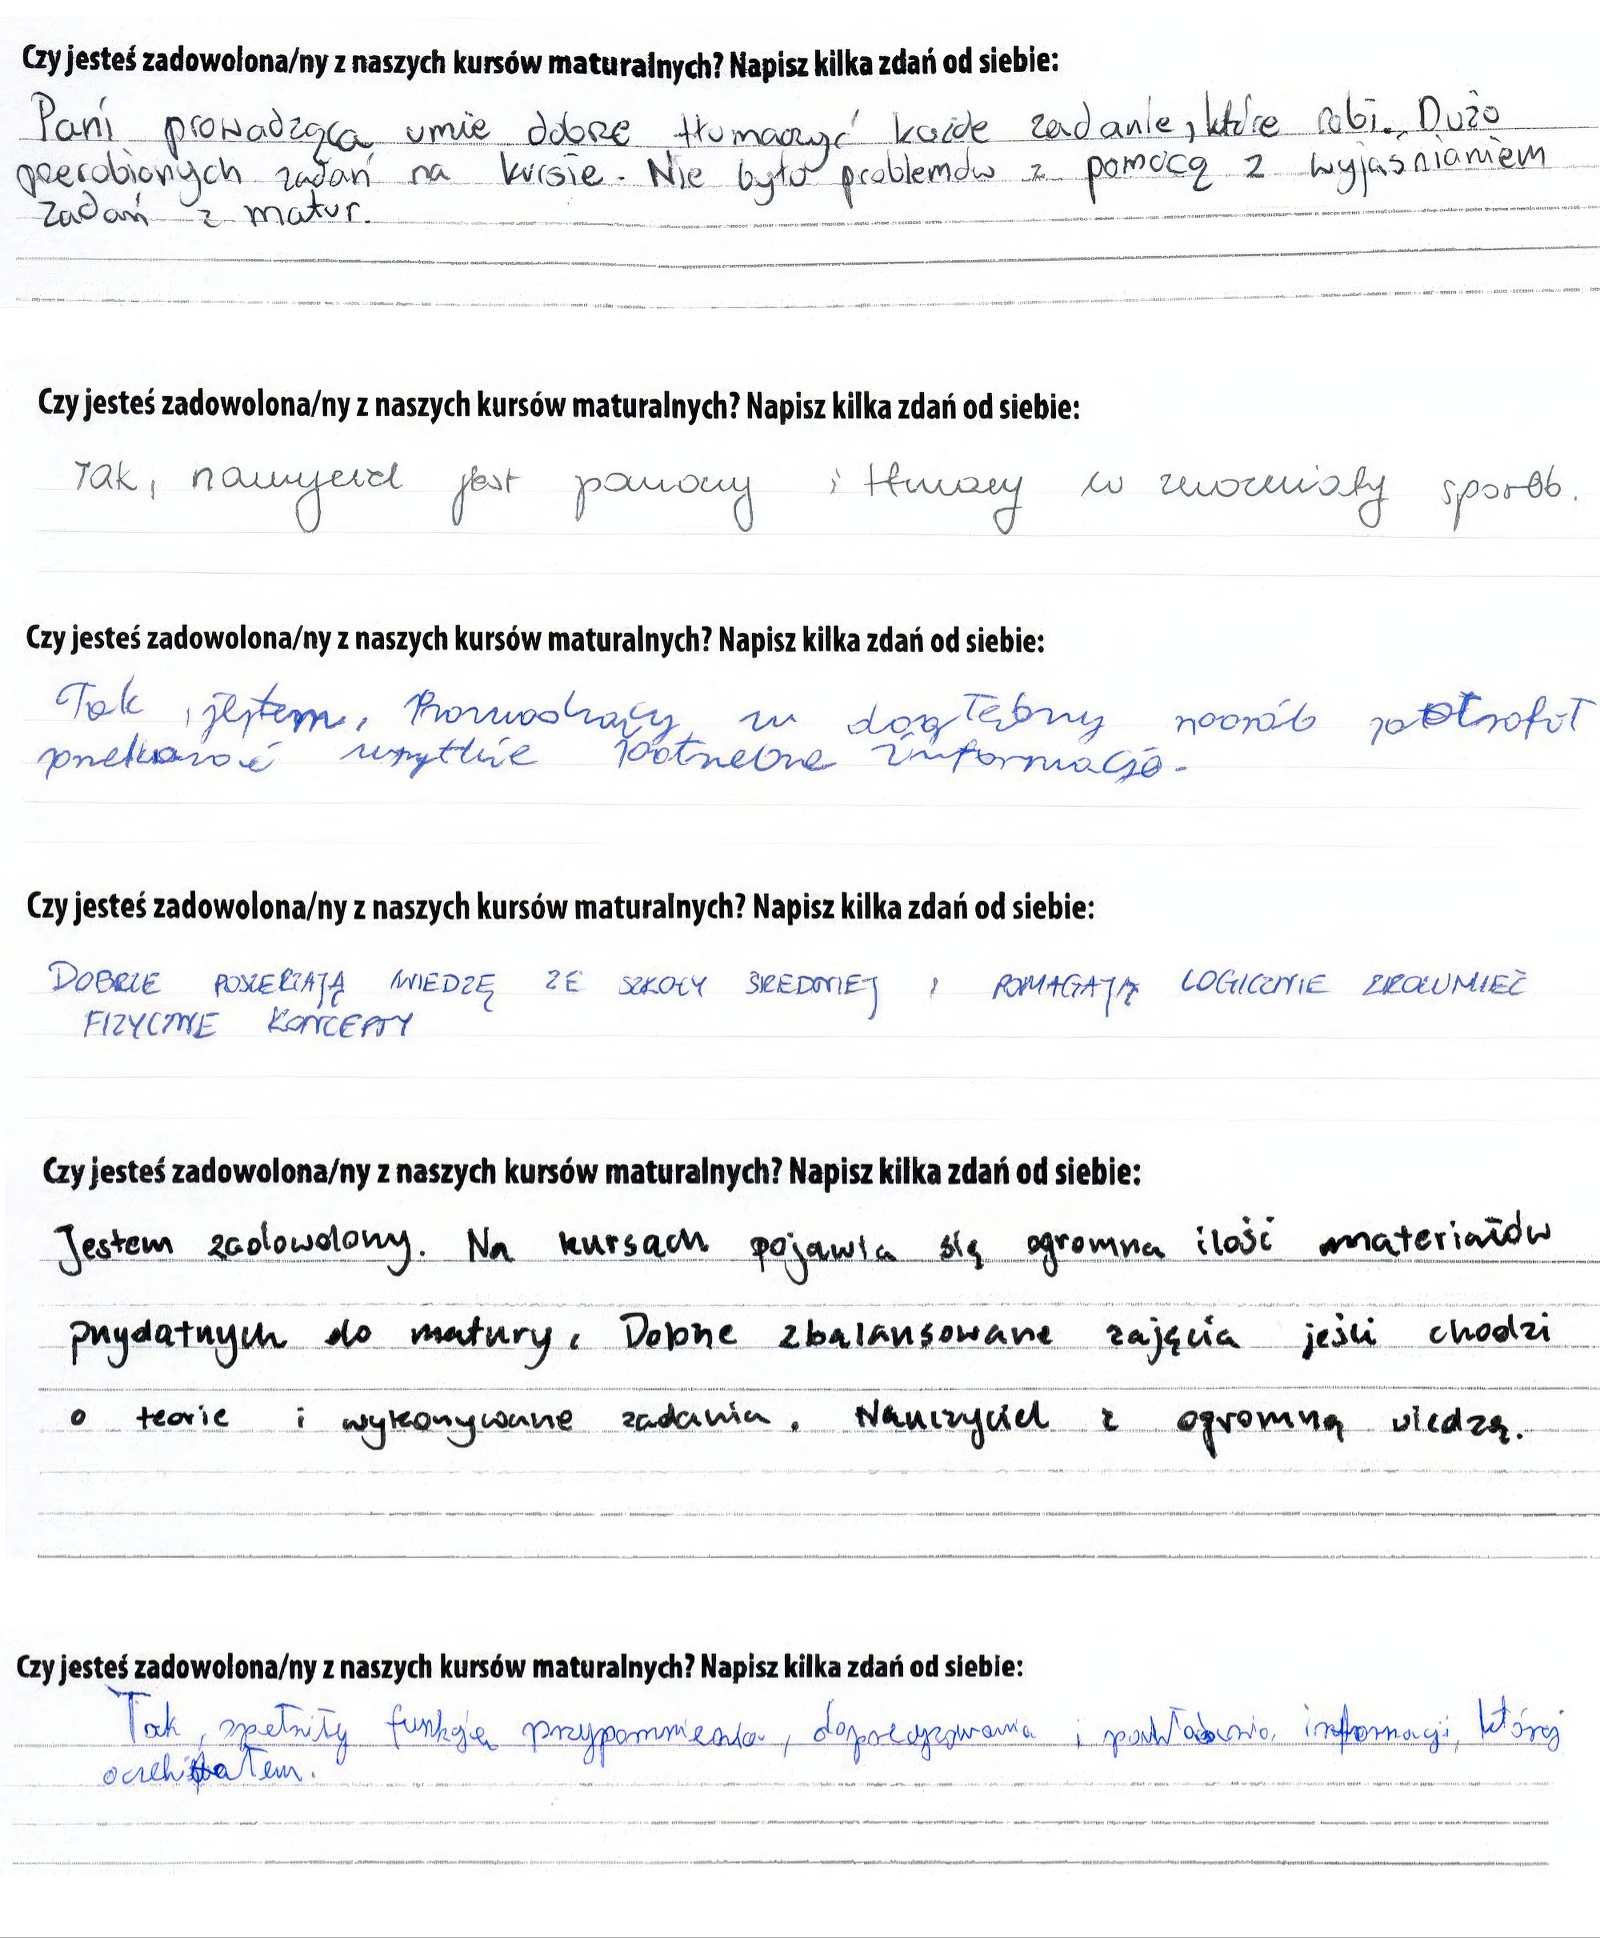 Czy jesteś zadowolona/ny z naszych kursów maturalnych? Napisz kilka zdań od siebie:
Pani prowadząca umie dobrze tłumaczyć każde zadanie, które robi. Dużo
przerobionych zadań na kursie. Nie było problemów z pomocą z wyjaśnianiem
zadań z matur.
Czy jesteś zadowolona/ny z naszych kursów maturalnych? Napisz kilka zdań od siebie:
Tak, nauczyciel jest pomocny i tłumaczy w zrozumiały sposób.
Czy jesteś zadowolona/ny z naszych kursów maturalnych? Napisz kilka zdań od siebie:
Tak, jestem, Prowadzący w dogłębny sposób potrafił
przekazać wszystkie potrzebne informacje.
Czy jesteś zadowolona/ny z naszych kursów maturalnych? Napisz kilka zdań od siebie:
DOBRZE POSZERZAJĄ WIEDZĘ ZE SZKOŁY ŚREDNIEJ I POMAGAJĄ LOGICZNIE ZROZUMIEĆ
FIZYCZNE KONCEPTY
Czy jesteś zadowolona/ny z naszych kursów maturalnych? Napisz kilka zdań od siebie:
Jestem zadowolony. Na kursach pojawia się ogromna ilość materiałów
przydatnych do matury. Dobrze zbalansowane zajęcia jeśli chodzi
o teorie i wykonywane zadania. Nauczyciel z ogromną wiedzą.
Czy jesteś zadowolona/ny z naszych kursów maturalnych? Napisz kilka zdań od siebie:
Tak, spełniły funkcję przypomnienia, doprecyzowania i poukładania informacji, której
oczekiwałem.